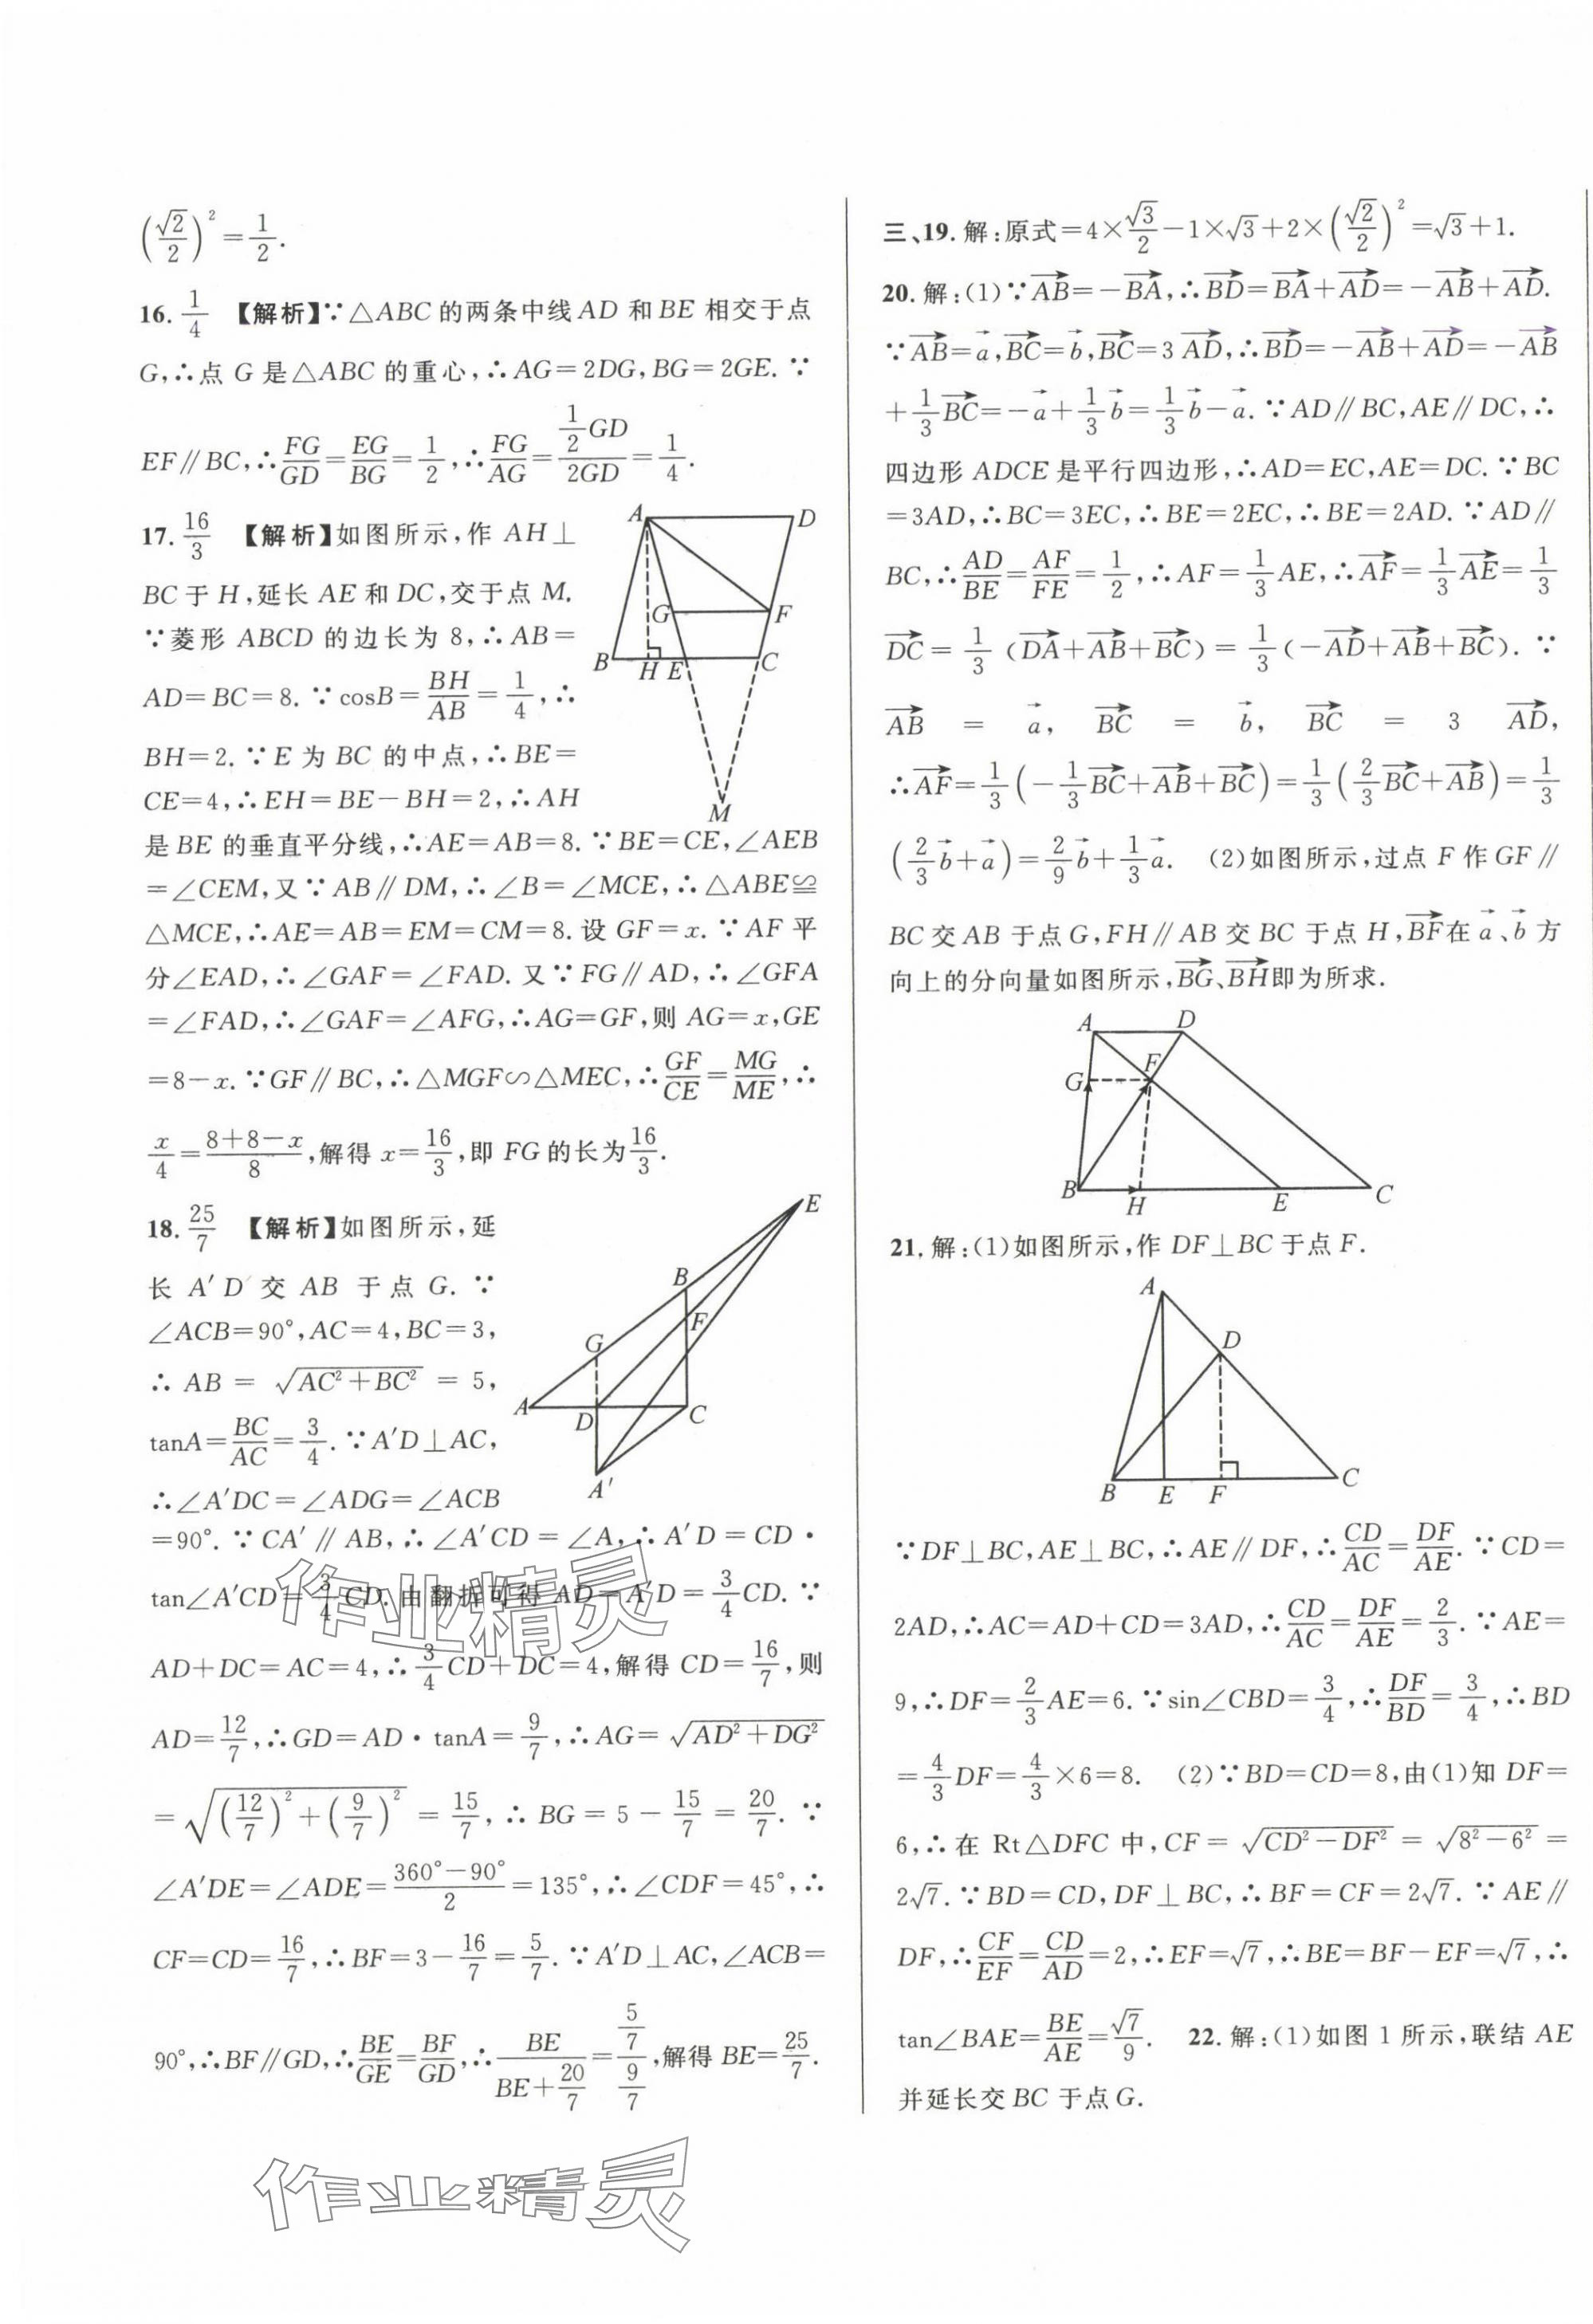 (√2/2)²=1/2.
16. 1/4 【解析】∵△ABC的两条中线AD和BE相交于点
G,∴点G是△ABC的重心,∴AG=2DG,BG=2GE.∵
EF∥BC,∴FG/GD=EG/BG=1/2,∴FG/AG=(1/2 GD)/(2GD)=1/4.
17. 16/3 【解析】如图所示,作AH⊥
BC于H,延长AE和DC,交于点M.
∵菱形ABCD的边长为8,∴AB=
AD=BC=8.∵cosB=BH/AB=1/4,∴
BH=2.∵E为BC的中点,∴BE=
CE=4,∴EH=BE-BH=2,∴AH
是BE的垂直平分线,∴AE=AB=8.∵BE=CE,∠AEB
=∠CEM,又∵AB∥DM,∴∠B=∠MCE,∴△ABE≌
△MCE,∴AE=AB=EM=CM=8.设GF=x.∵AF平
分∠EAD,∴∠GAF=∠FAD.又∵FG∥AD,∴∠GFA
=∠FAD,∴∠GAF=∠AFG,∴AG=GF,则AG=x,GE
=8-x.∵GF∥BC,∴△MGF∽△MEC,∴GF/CE=MG/ME,∴
x/4=(8+8-x)/8,解得x=16/3,即FG的长为16/3.
A D G F B H E C M
18. 25/7 【解析】如图所示,延
长A′D交AB于点G.∵
∠ACB=90°,AC=4,BC=3,
∴AB=√(AC²+BC²)=5,
tanA=BC/AC=3/4.∵A′D⊥AC,
∴∠A′DC=∠ADG=∠ACB
=90°.∵CA′∥AB,∴∠A′CD=∠A,∴A′D=CD·
tan∠A′CD=3/4CD.由翻折可得AD=A′D=3/4CD.∵
AD+DC=AC=4,∴3/4CD+DC=4,解得CD=16/7,则
AD=12/7,∴GD=AD·tanA=9/7,∴AG=√(AD²+DG²)
=√((12/7)²+(9/7)²)=15/7,∴BG=5-15/7=20/7.∵
∠A′DE=∠ADE=(360°-90°)/2=135°,∴∠CDF=45°,∴
CF=CD=16/7,∴BF=3-16/7=5/7.∵A′D⊥AC,∠ACB=
90°,∴BF∥GD,∴BE/GE=BF/GD,∴BE/(BE+20/7)=(5/7)/(9/7),解得BE=25/7.
E B F G A D C A′
作业精灵
作业精灵
三、19.解:原式=4×√3/2-1×√3+2×(√2/2)²=√3+1.
20.解:(1)∵AB→=-BA→,∴BD→=BA→+AD→=-AB→+AD→.
∵AB→=a→,BC→=b→,BC→=3AD→,∴BD→=-AB→+AD→=-AB→
+1/3BC→=-a→+1/3b→=1/3b→-a→.∵AD∥BC,AE∥DC,∴
四边形ADCE是平行四边形,∴AD=EC,AE=DC.∵BC
=3AD,∴BC=3EC,∴BE=2EC,∴BE=2AD.∵AD∥
BC,∴AD/BE=AF/FE=1/2,∴AF=1/3AE,∴AF→=1/3AE→=1/3
DC→=1/3(DA→+AB→+BC→)=1/3(-AD→+AB→+BC→).∵
AB→=a→,BC→=b→,BC→=3AD→,
∴AF→=1/3(-1/3BC→+AB→+BC→)=1/3(2/3BC→+AB→)=1/3
(2/3b→+a→)=2/9b→+1/3a→. (2)如图所示,过点F作GF∥
BC交AB于点G,FH∥AB交BC于点H,BF→在a→、b→方
向上的分向量如图所示,BG→、BH→即为所求.
A D F G B H E C
21.解:(1)如图所示,作DF⊥BC于点F.
A D B E F C
∵DF⊥BC,AE⊥BC,∴AE∥DF,∴CD/AC=DF/AE.∵CD=
2AD,∴AC=AD+CD=3AD,∴CD/AC=DF/AE=2/3.∵AE=
9,∴DF=2/3AE=6.∵sin∠CBD=3/4,∴DF/BD=3/4,∴BD
=4/3DF=4/3×6=8. (2)∵BD=CD=8,由(1)知DF=
6,∴在Rt△DFC中,CF=√(CD²-DF²)=√(8²-6²)=
2√7.∵BD=CD,DF⊥BC,∴BF=CF=2√7.∵AE∥
DF,∴CF/EF=CD/AD=2,∴EF=√7,∴BE=BF-EF=√7,∴
tan∠BAE=BE/AE=√7/9. 22.解:(1)如图1所示,联结AE
并延长交BC于点G.